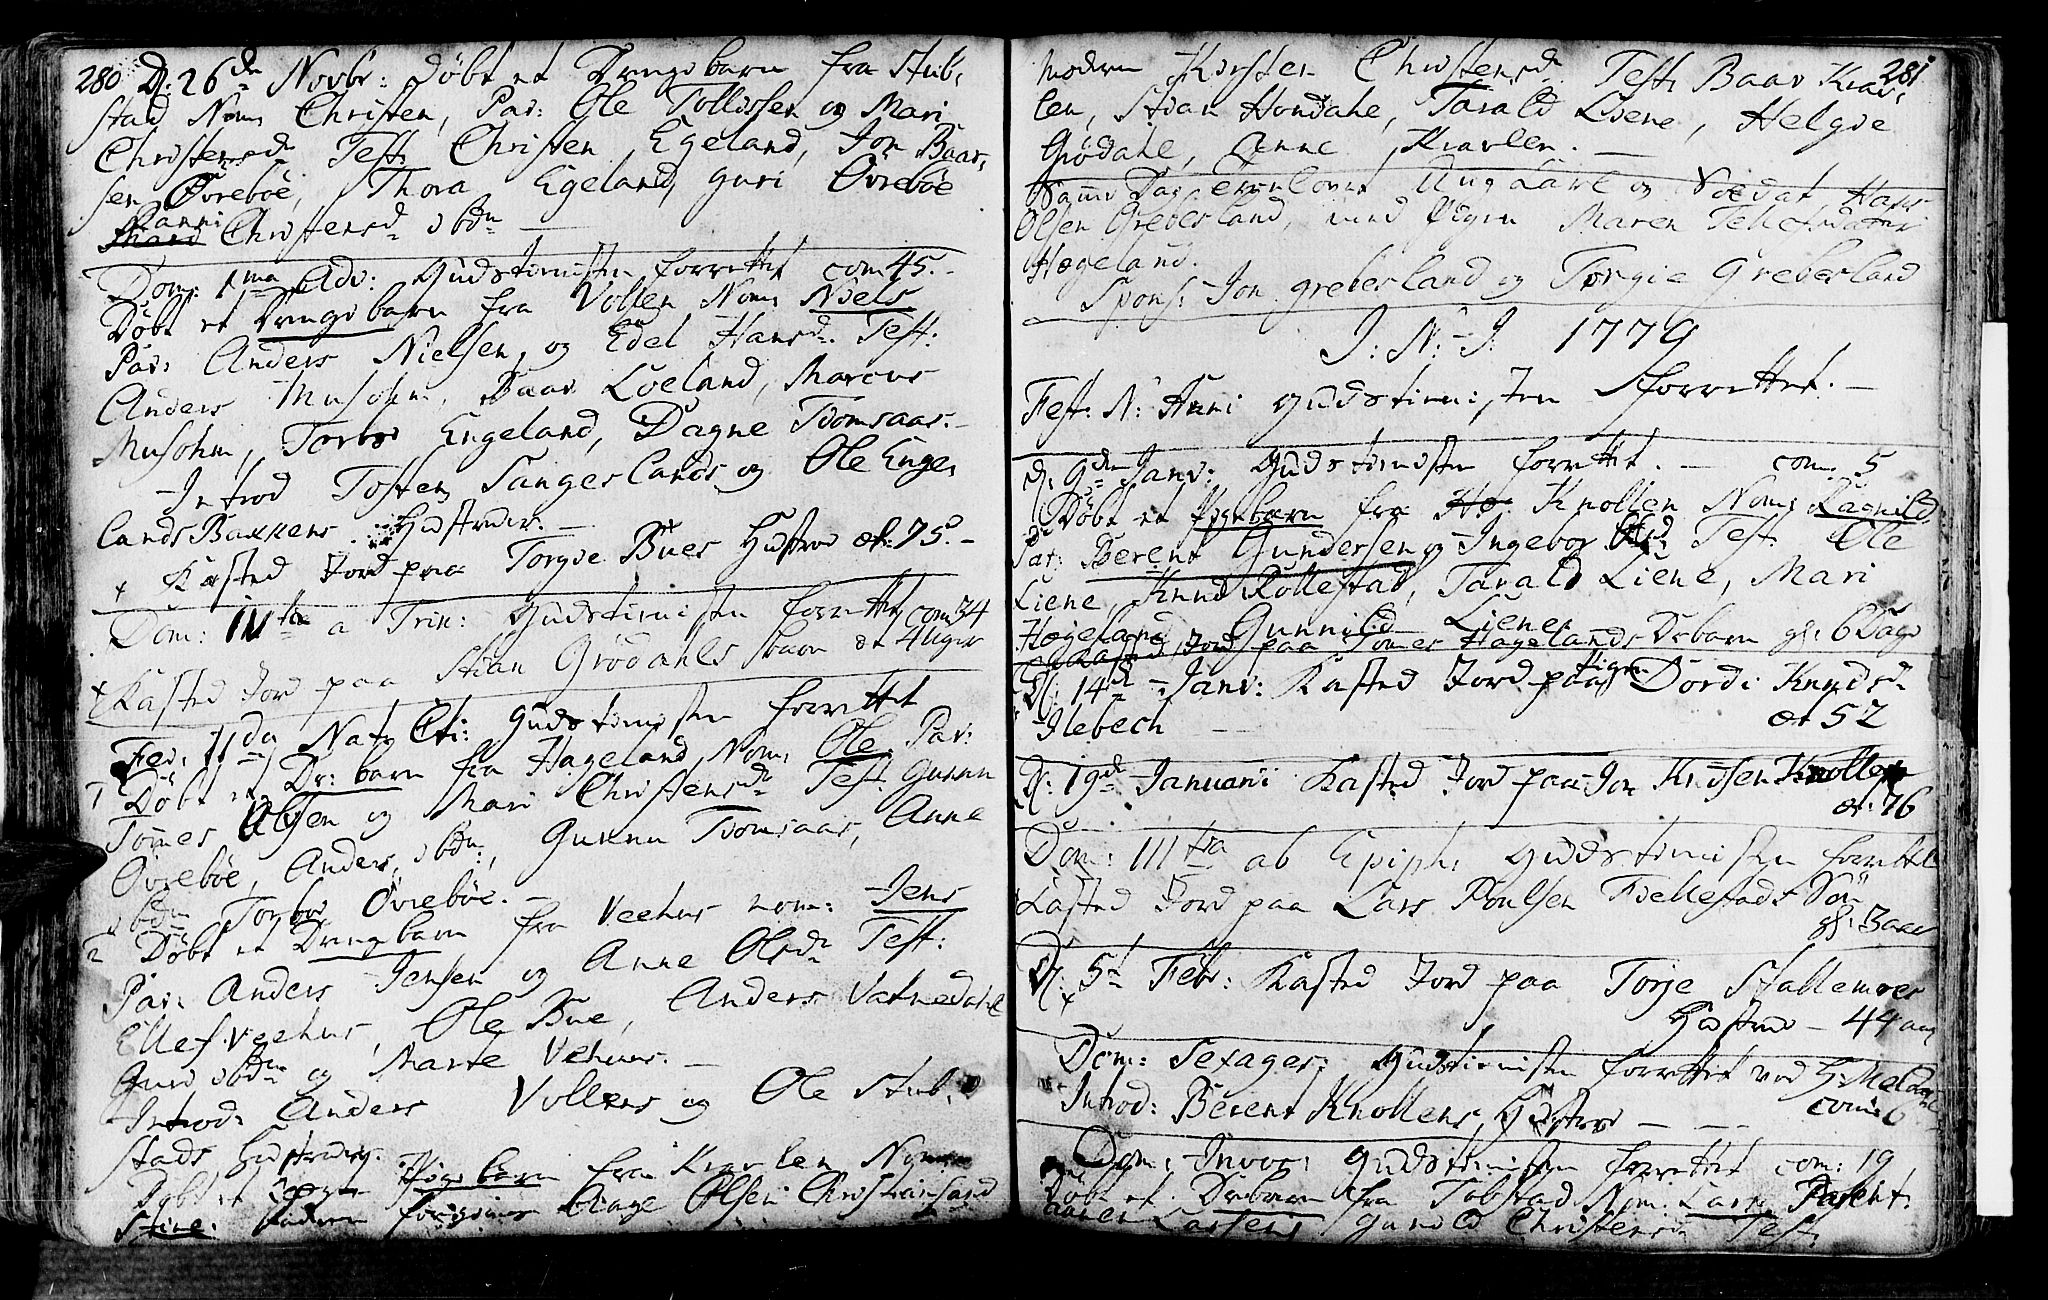 280 D: 26de Novbr: døbt et Drengebarn fra Stub,
stad Nom: Christen, Par: Ole Tollissen og Mari
Christensd: Test: Christen Egeland, Jon Baar,
sen Øvrebøe, Thora Egeland, Guri Øvrebøe
Christensd: ibdm
Dom: 1ma Adv: Gudstienisten forrettet com 45.
Døbt et Drengebarn fra Vollen Nom: Niels
Par: Anders Nielsen, og Edel Hansd: Test:
Anders Musohm, Baar Loeland, Marcus
Musohm, Torbor Engeland, Dagne Tiomsaas.
Introd Tosten Sangeslands og Ole Enge,
lands Bakkens Hustruer.
+ Kasted Jord paa Torgie Bues Hustroe æt: 75.
Dom: IVta a Trin: Gudstienisten forrettet com 34
+ Kasted Jord paa Stian Grödahls barn æt 4 Uger
Fer: IIda Nat: Cti: Gudstienisten forrettet
1 Døbt et Dr: barn fra Hageland Nom: Ole. Par:
Tomes Olsen og Mari Christensd: Test: Gunnu
Øvrebøe, Anders ibdm:, Gunnu Tiomsaas, Anne
ibdm Torbor Øvrebøe.
2 Døbt et Drengebarn fra Veehus nom: Jens
Par: Anders Jensen og Anne Olsd: Test:
Ellef Veehus, Ole Bue, Anders Vatnedahl
Guri ibdm og Marte Vehuus.
Introd: Anders Vollens og Ole Stub,
stads Hustruer.
Døbt et Pigebarn fra Kravlen Nom
Stine: Fadren Aage Olsen Christiansand
281
Modren Kirsten Christensd: Test: Baar Krav,
len, Stian Homdahl, Tarald Liene, Helgie
Grödahl, Anne Kravlen.
Samme Dag Trolovet Ung Karl og Soldat Hans
Olsen Greberland, med Pigen Maren Tellefsdatter
Hægeland.
Spons: Jon Greberland og Torgie Greberland
J: N: J: 1779
Fest: N: Anni Gudstienisten forrettet.
d: 9de Janv: Gudstienisten forrettet. com: 5
Døbt et Pigebarn fra Knollen Nom: Ragnild
Par: Berent Gundersen og Ingebor Test: Ole
Liene, Knud Rollestad, Tarald Liene, Mari
Hægeland, Gunnild Liene.
Kasted Jord paa Tomes Hagelands Drbarn gl: 6 Dage
D: 14de Janv: Kasted Jord paa Pigen Dordi Knudsd:
Ilebech æt 52
D: 19de Januarii Kasted Jord paa Jon Knudsen Knollen
æt: 76
Dom: IIItia ab Epiph: Gudstienisten forrettet
Kasted Jord paa Lars Poulsen Fiellestads Søn
gl: 3 aar
D: 5te Febr: Kasted Jord paa Torje Stallemoes
+ Hustroe - 44 aar
Dom: Sexages: Gudstienisten forrettet ved
com: 6
Introd: Berent Knollens Hustroe
Dom: Invoc: Gudstienisten forrettet com: 19
Døbt et Drbarn fra Tobstad Nom: Lars Parent:
Larsen Gunild Christensd: Test: